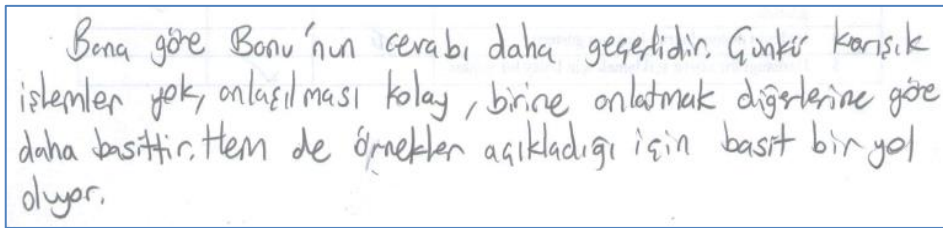 Bana göre Banu'nun cevabı daha geçerlidir. Çünkü karışık
işlemler yok, anlaşılması kolay, birine anlatmak diğerlerine göre
daha basittir. Hem de örnekler açıkladığı için basit bir yol
oluyor.